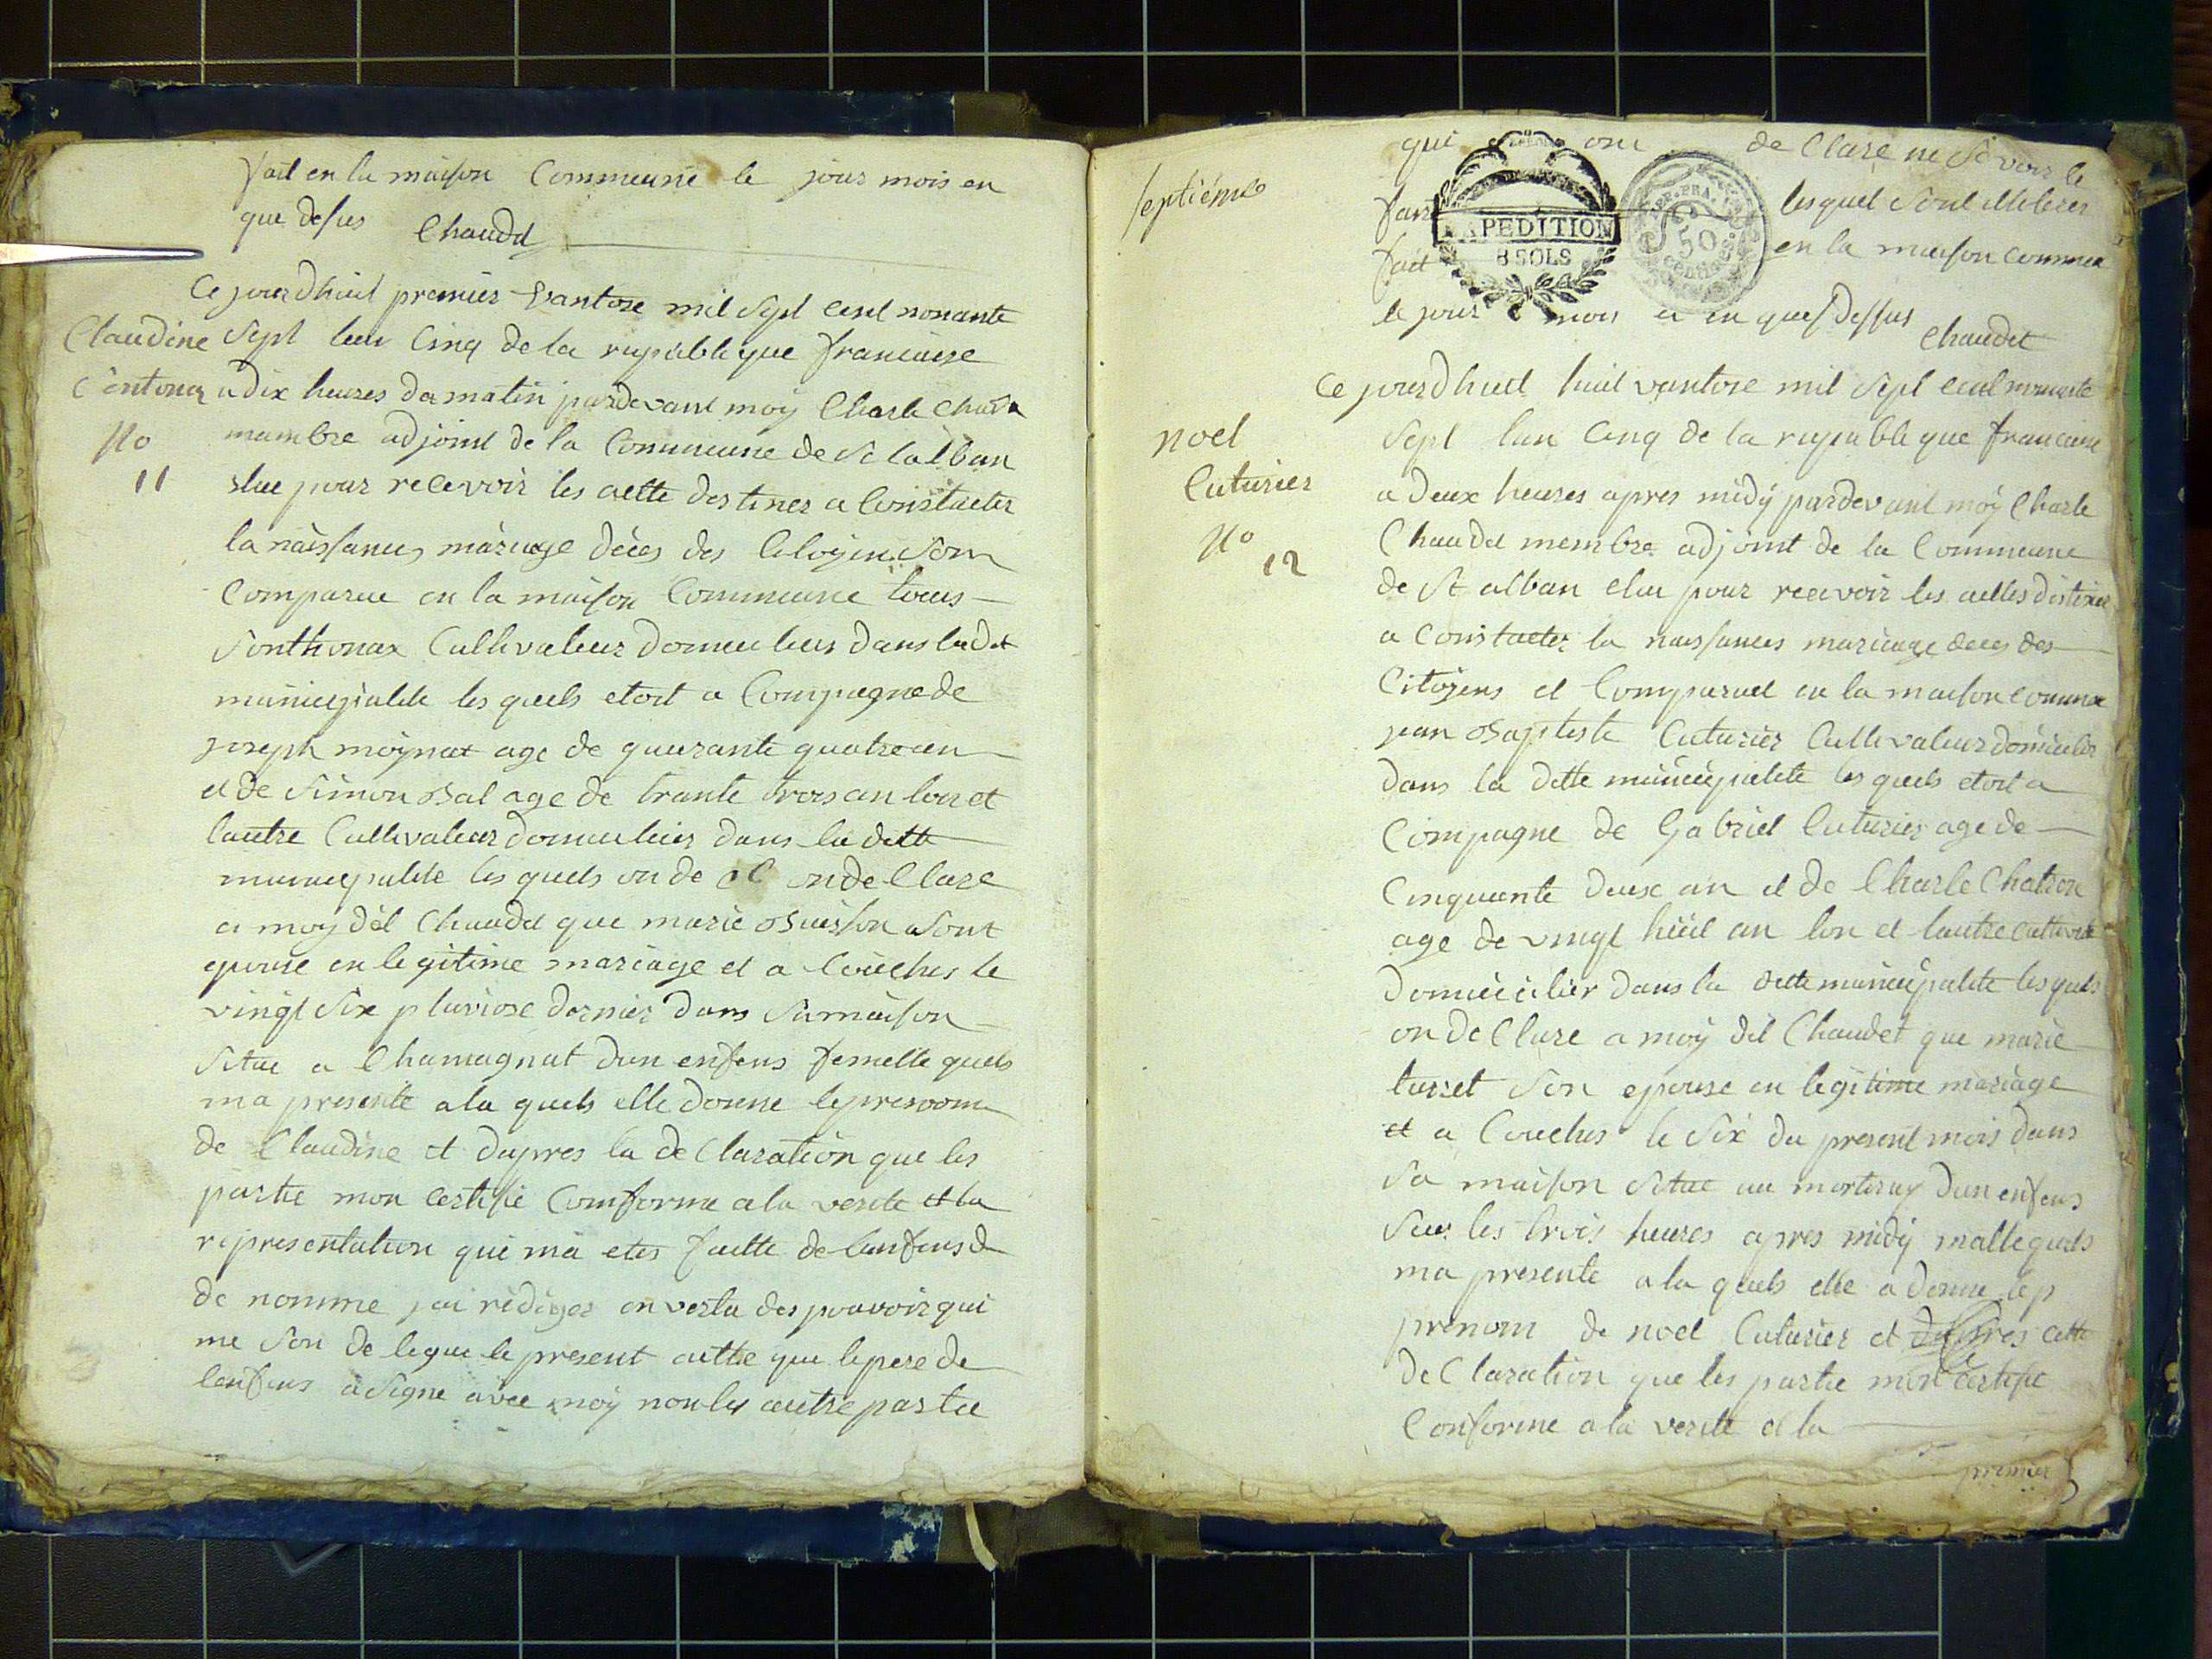 fait en la maison Commeune le jour mois en
que desus Chaudet
Ce jourdhuit premier vantose mil sept cent nonante
Claudine
Sontonax
No
11
sept lan Cinq de la republique francaise
a dix heures du matin pardevant moy Charle
mambre adjoint de la Commeune de St alban
elue pour recevoir les actte destines a Constacter
la naissances mariage déces des Citoyen Som
Comparue en la maison Commeune
Sonthonax Cultivateur domicilier dans ladit
municipalite les quels etoit a Compagne de
joseph moynat age de quarante quatre an
et de Simon Bal age de trante trois an lon et
lautre Cultivateur domicilier dans la ditte
municipalite les quels on de on de Clare
a moy dit Chaudet que marie Buisson Sont
epouse en legitime mariage et a Couches le
vingt Six pluviose dernier dans Sa maison
Situe a Chamagnat dun enfens femelle quels
ma presente a la quels elle donne le prenom
de Claudine et dapres la de Claration que les
partie mon certifie Comforme a la verite et la
representation qui ma etes faitte de lenfens d
de nomme jai rediger en vertu des pouvoir qui
me Son de legue le present actte que le pere de
lenfens a Signe avec moy non les autre partie
septiéme
qui on de Clare ne Savoir le
faire
lesquel Sont illiteres
fait
en la maison commeu
le jour mois et en que desus
Chaudet
EXPEDITION
8 SOLS
REP. FRA.
50
centimes.
Ce jourdhuit huit vantose mil sept cent nonante
noel
Cuturier
No
12
Sept lan Cinq de la republique francaise
a deux heures apres midy pardevant moy Charle
Chaudet membre adjoint de la Commeune
de St alban elue pour recevoir les acttes destiner
a Constacter la naissances mariage deces des
Citoyens et Comparuet en la maison commeu
jean Baptiste Cuturier Cultivateur domicilier
dans la ditte municipalite les quels etoit a
Compagne de Gabriel Cuturier age de
Cinquante deux an et de Charle Chatron
age de vingt huit an lon et lautre cultivate
domicilier dans la ditte municipalite les quels
on de Clare a moy dit Chaudet que marie
turset Son epouse en legitime mariage
et a Couches le Six du present mois dans
Sa maison Situe au mortaray dun enfens
Sur les trois heures apres midy malle quels
ma presente a la quels elle a donne le p
prenom de noel Cuturier et dapres cette
de Claration que les partie mon certifie
Conforme a la verite et la
premier